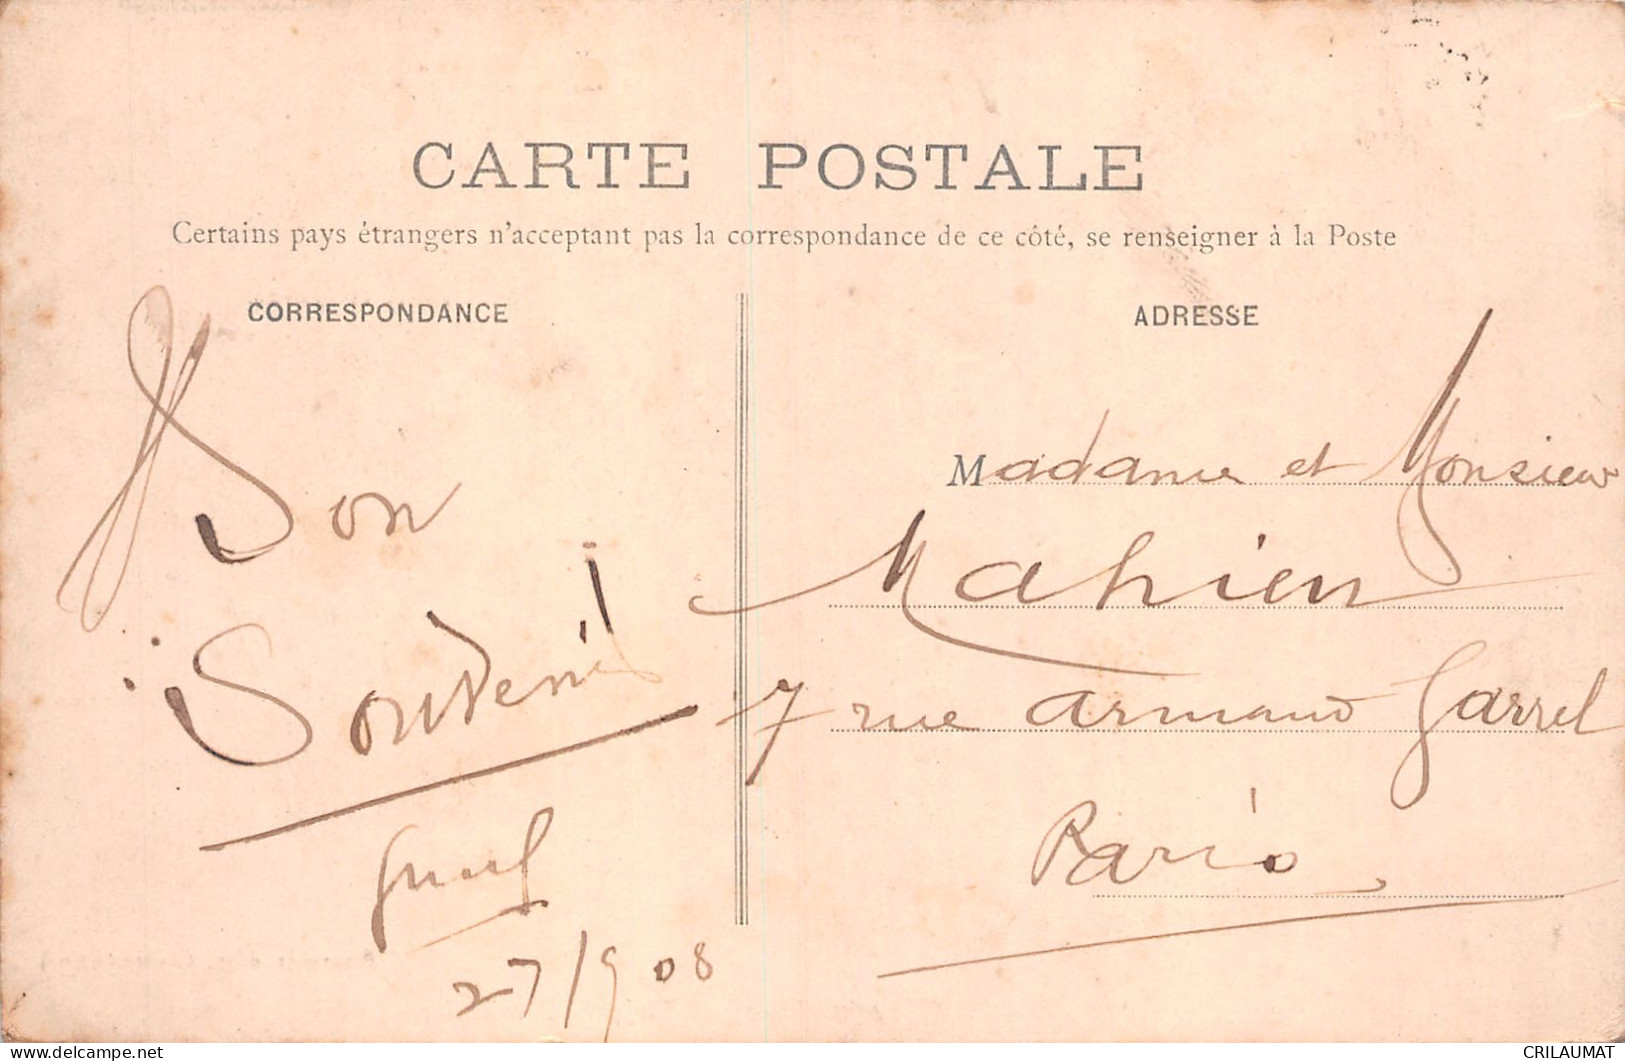 CARTE POSTALE
Certains pays étrangers n'acceptant pas la correspondance de ce côté, se renseigner à la Poste
CORRESPONDANCE
Bon
Souvenir
27/9 08
ADRESSE
Madame et Monsieur
Mahieu
7 rue Armand Garrel
Paris
CRILAUMAT